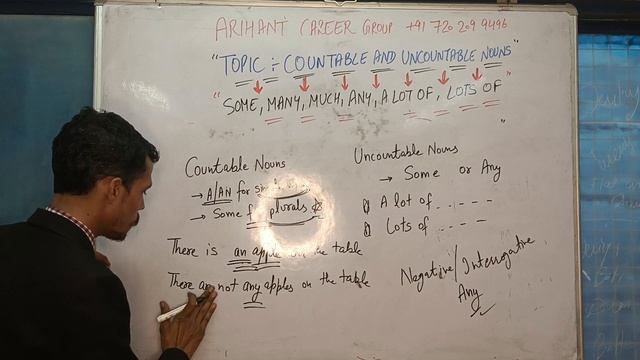 ARIHANT CAREER GROUP +91 720 209 9496
"TOPIC :- COUNTABLE AND UNCOUNTABLE NOUNS"
"SOME, MANY, MUCH, ANY, A LOT OF, LOTS OF"
Countable Nouns
→ A/AN for
→ Some plurals
There is an apple on the table
There are not any apples on the table
Uncountable Nouns
→ Some or Any
A lot of - - - -
Lots of - - - -
Negative/Interrogative
Any